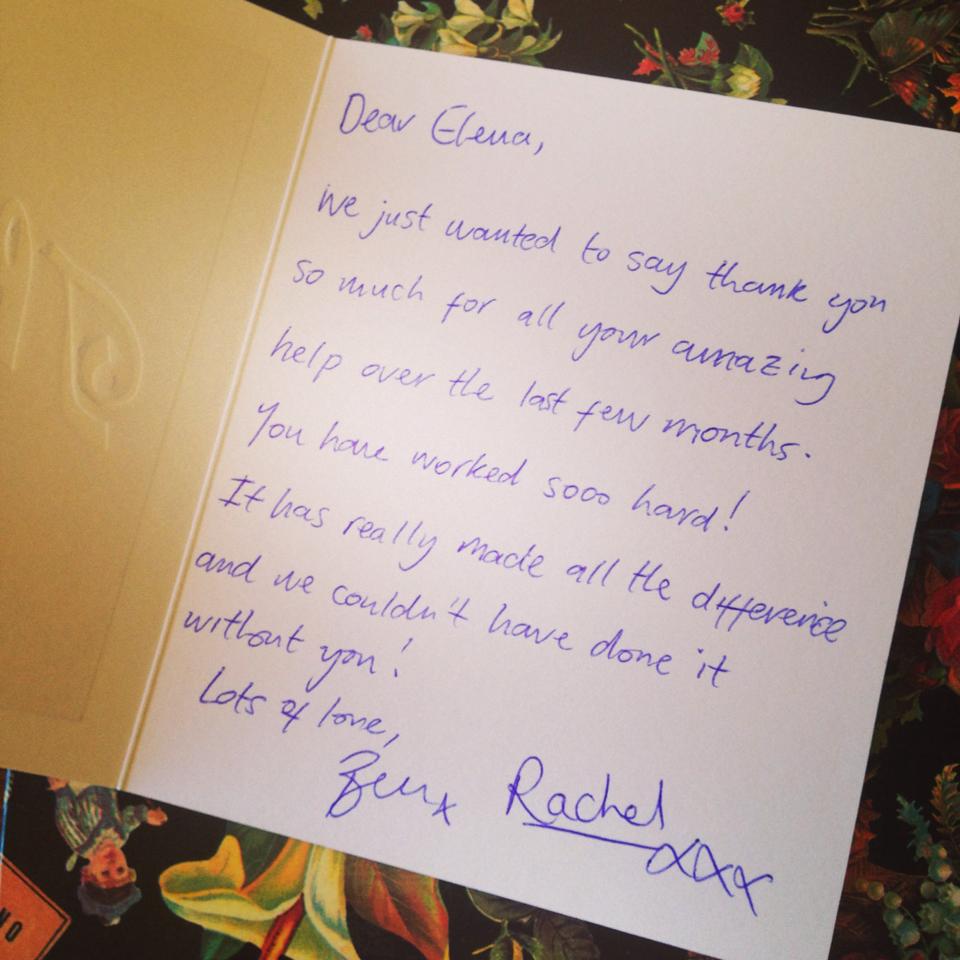 Dear Elena,
We just wanted to say thank you
so much for all your amazing
help over the last few months.
You have worked sooo hard!
It has really made all the difference
and we couldn't have done it
without you!
Lots of love,
Ben x Rachel xxx
NO